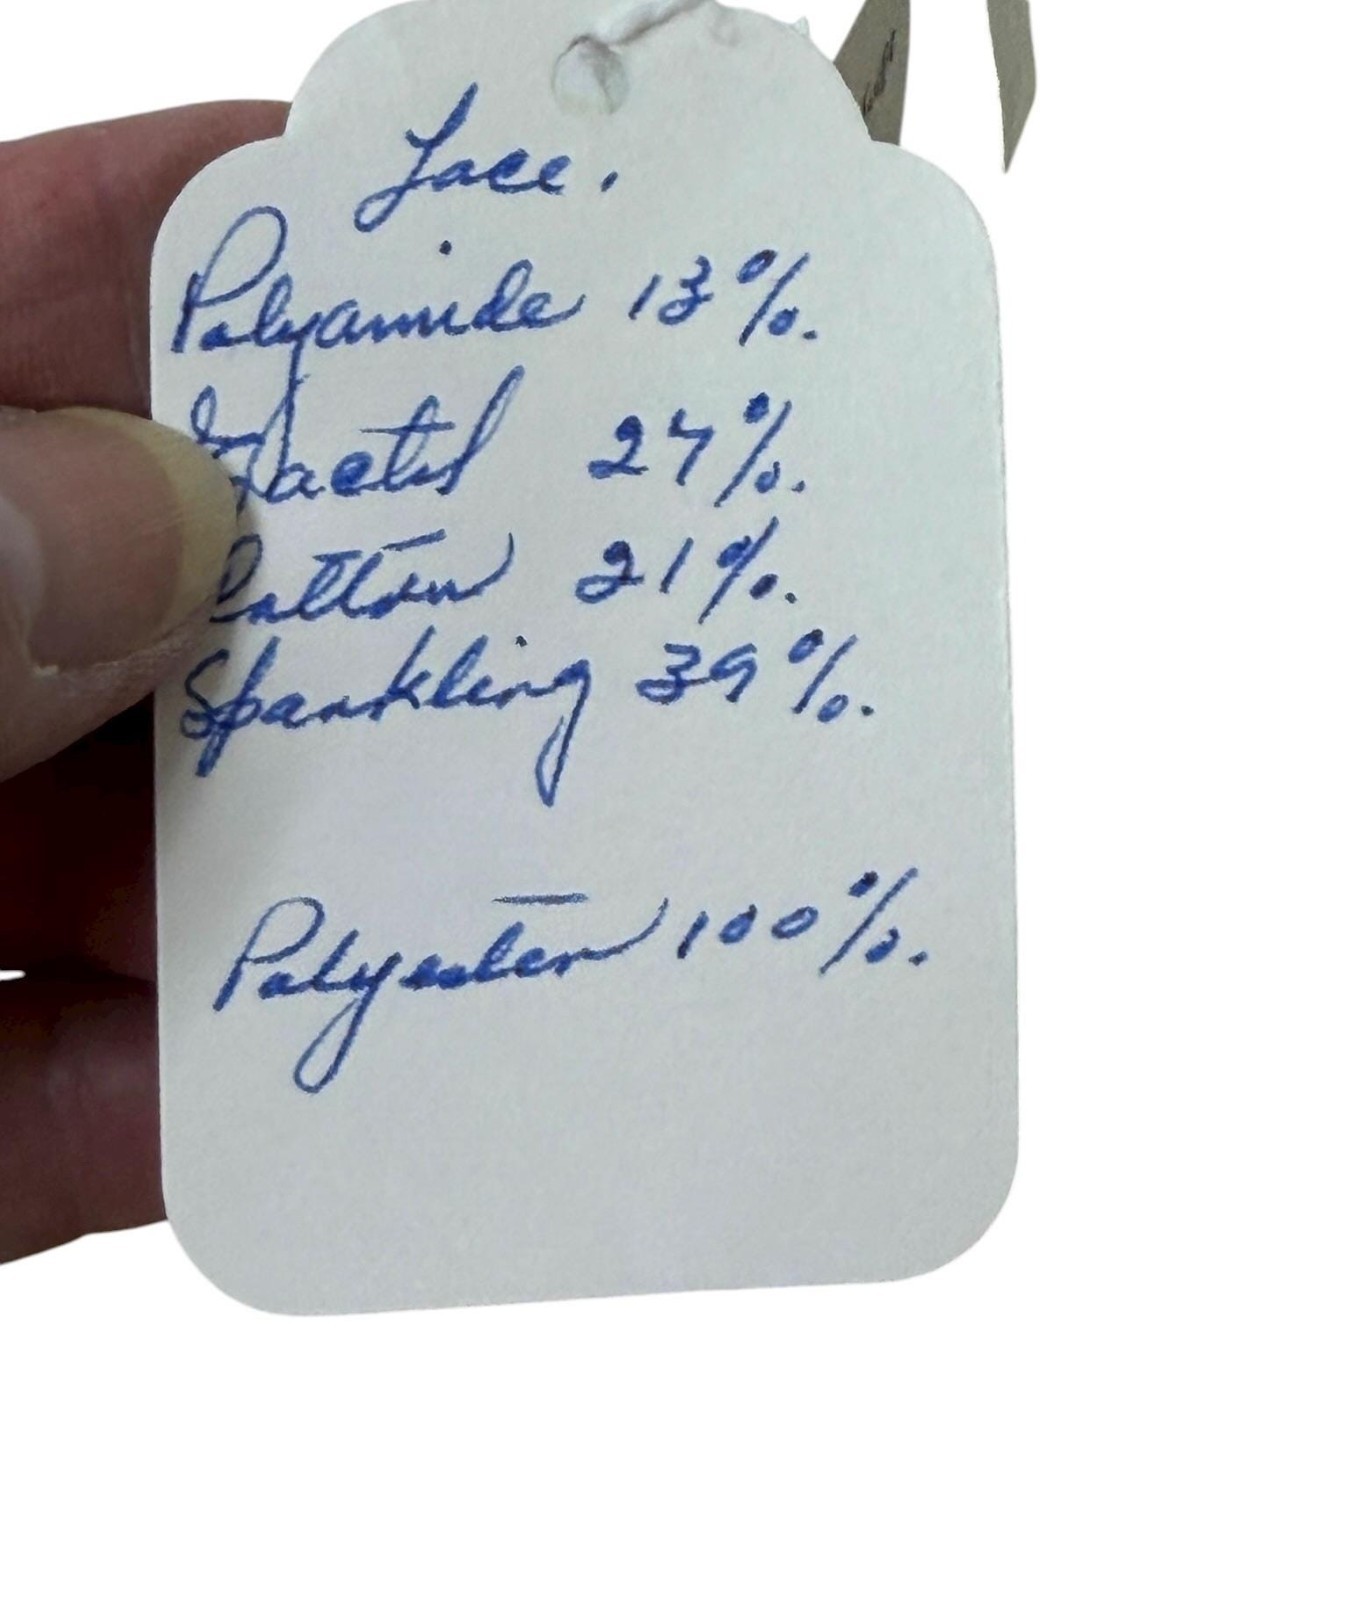 Lace.
Polyamide 13%.
Lactel 27%.
Cotton 21%.
Sparkling 39%.
Polyester 100%.